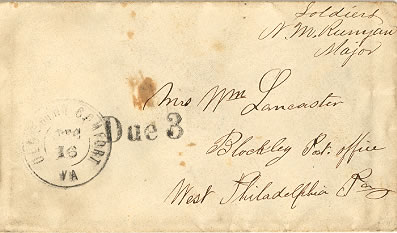 Soldiers
N. M. Runyan
Major
OLD POINT COMFORT
DEC
16
VA
Due 3
Mrs Wm Lancaster
Blockley Post. office
West Philadelphia Pa